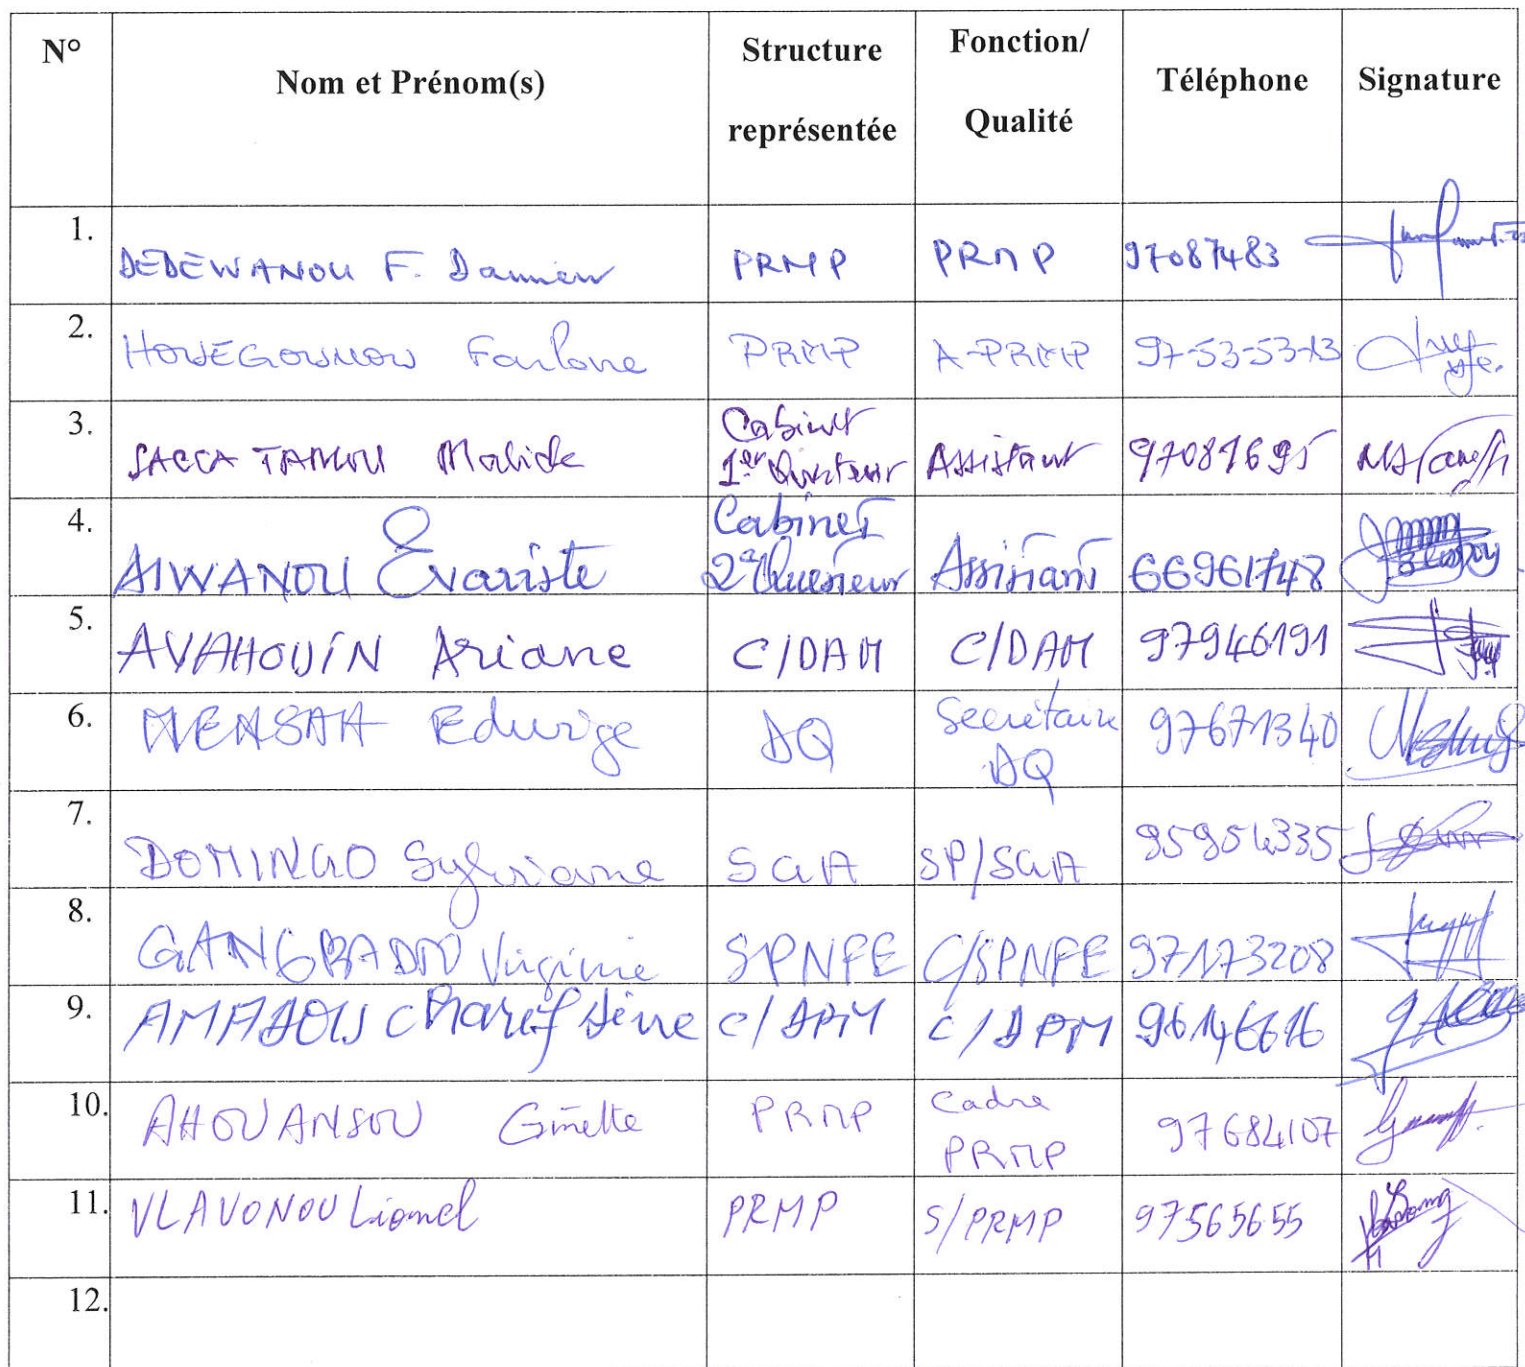 N° Nom et Prénom(s) Structure représentée Fonction/ Qualité Téléphone Signature
1. DEDEWANOU F. Damien PRMP PRMP 97087483
2. HOUEGOUNOU Farlone PRMP A-PRMP 97-53-53-13
3. SACCA TAMOU Malick Cabinet 1er Questeur Assistant 97081695
4. AIWANOU Evariste Cabinet 2e Questeur Assistant 66961748
5. AVAHOUIN Ariane C/DAM C/DAM 97946191
6. MENSAH Edwige DQ Secrétaire DQ 97671340
7. DOMINGO Sylviane SGA SP/SGA 95954335
8. GANGBADJO Virginie SPNFE C/SPNFE 97173208
9. AMADOU Charef Dine C/DPM C/DPM 96146616
10. AHOUANSOU Ginette PRMP Cadre PRMP 97684107
11. VLAVONOU Lionel PRMP S/PRMP 97565655
12.